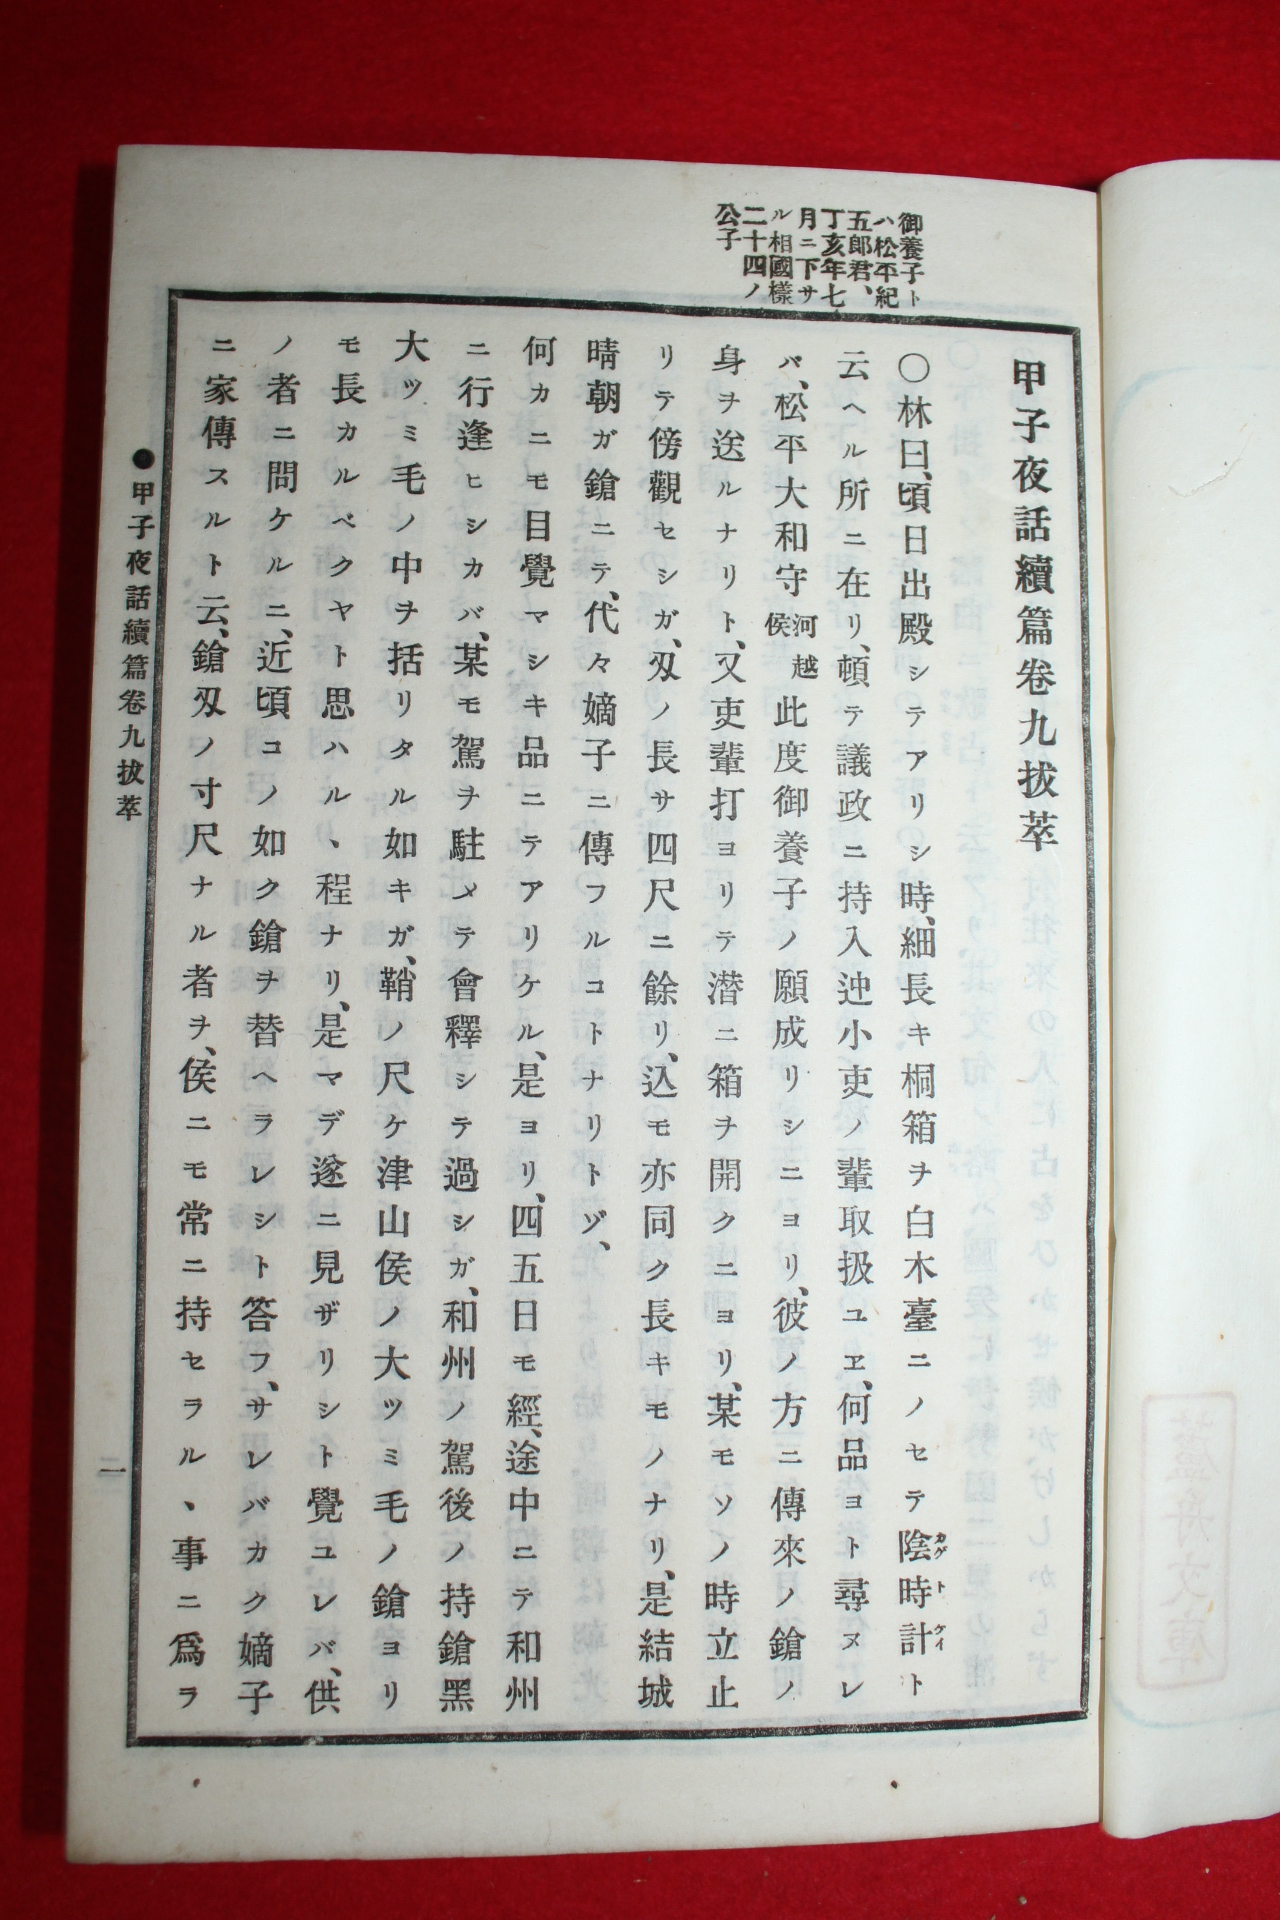 御養子ト
ハ松平紀
五郎君、
丁亥年七
月ニ下サ
ル相國樣
二十四ノ
公子
甲子夜話續篇卷九拔萃
〇林曰、頃日出殿シテアリシ時、細長キ桐箱ヲ白木臺ニノセテ陰時計ト
カゲトケイ
云ヘル所ニ在リ、頓テ議政ニ持入迚小吏ノ輩取扱ユヱ、何品ヨト尋ヌレ
バ、松平大和守河越侯此度御養子ノ願成リシニヨリ、彼ノ方ニ傳來ノ鎗ノ
身ヲ送ルナリト、又吏輩打ヨリテ潜ニ箱チ開クニヨリ、某モソノ時立止
リテ傍觀セシガ、刄ノ長サ四尺ニ餘リ、込モ亦同ク長キモノナリ、是結城
晴朝ガ鎗ニテ、代々嫡子ニ傳フルコトナリトゾ、
何カニモ目覺マシキ品ニテアリケル、是ヨリ、四五日モ經、途中ニテ和州
ニ行逢ヒシカバ、某モ駕ヲ駐メテ會釋シテ過シガ、和州ノ駕後ノ持鎗黑
大ツミ毛ノ中ヲ括リタル如キガ、鞘ノ尺ケ津山侯ノ大ツミ毛ノ鎗ヨリ
モ長カルベクヤト思ハル、程ナリ、是マデ遂ニ見ザリシト覺ユレバ、供
ノ者ニ問ケルニ、近頃コノ如ク鎗ヲ替ヘラレシト答フ、サレバカク嫡子
ニ家傳スルト云、鎗刄ノ寸尺ナル者ヲ、侯ニモ常ニ持セラル、事ニ爲ラ
●甲子夜話續篇卷九拔萃
二